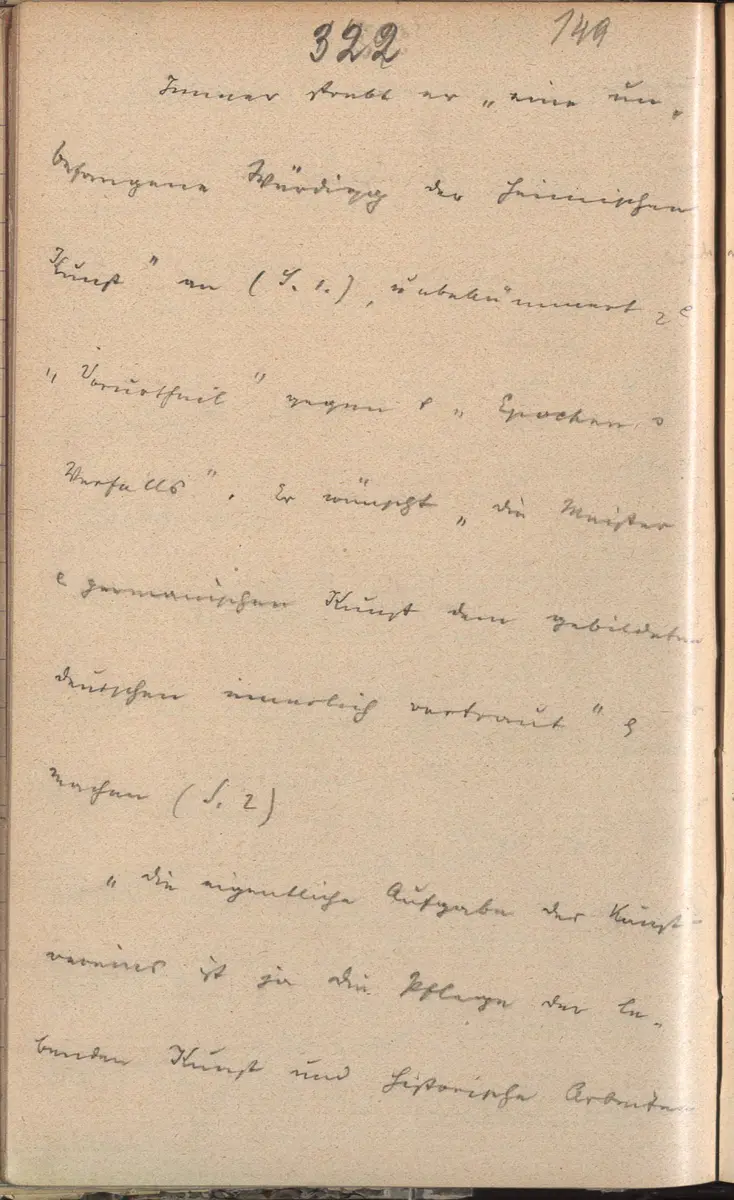 322 149
Immer strebt er „eine un-
befangene Würdigg der heimischen
Kunst" an (S. 1.), unbekümmert
„Vorurtheil" gegen „Epochen
Verfalls". Er wünscht „die Meister
germanischen Kunst dem gebildeten
deutschen innerlich vertraut"
machen (S. 2)
„die eigentliche Aufgabe der Kunst-
vereins ist ja die Pflege der le-
benden Kunst und historische Arbeiten